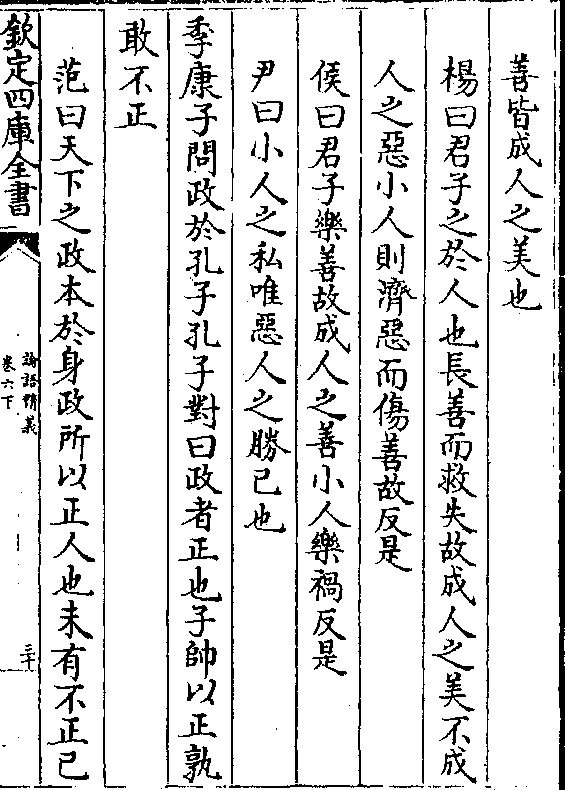 善皆成人之美也
楊曰君子之於人也長善而救失故成人之美不成
人之惡小人則濟惡而傷善故反是
侯曰君子樂善故成人之善小人樂禍反是
尹曰小人之私唯惡人之勝己也
季康子問政於孔子孔子對曰政者正也子帥以正孰
敢不正
范曰天下之政本於身政所以正人也未有不正己
欽定四庫全書
論語精義
卷六下
三十